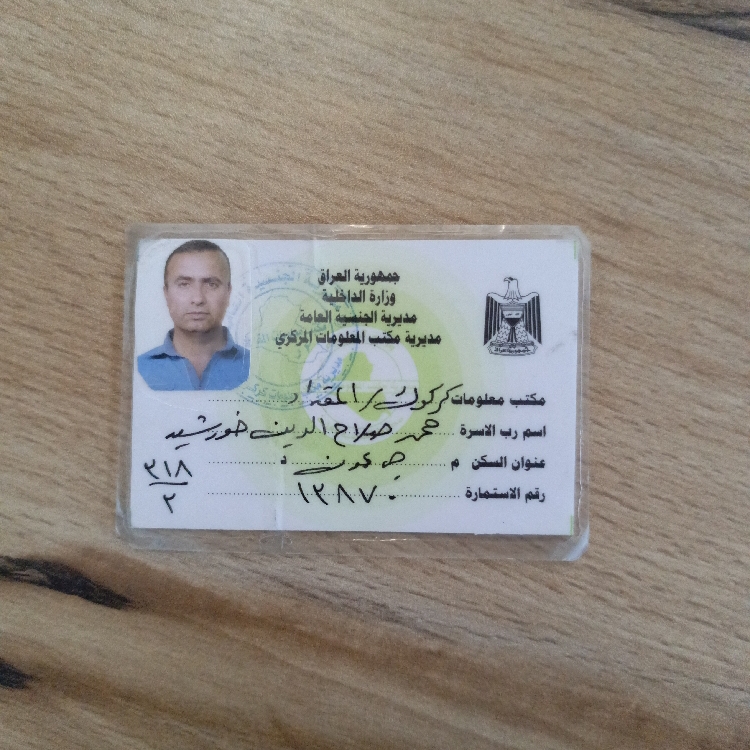 جمهورية العراق
وزارة الداخلية
مديرية الجنسية العامة
مديرية مكتب المعلومات المركزي
جمهورية العراق
مكتب معلومات كركوك / المقداد
اسم رب الاسرة محمد صلاح الدين خورشيد
عنوان السكن م د
رقم الاستمارة ١٣٨٧٠
٣١٨
٢